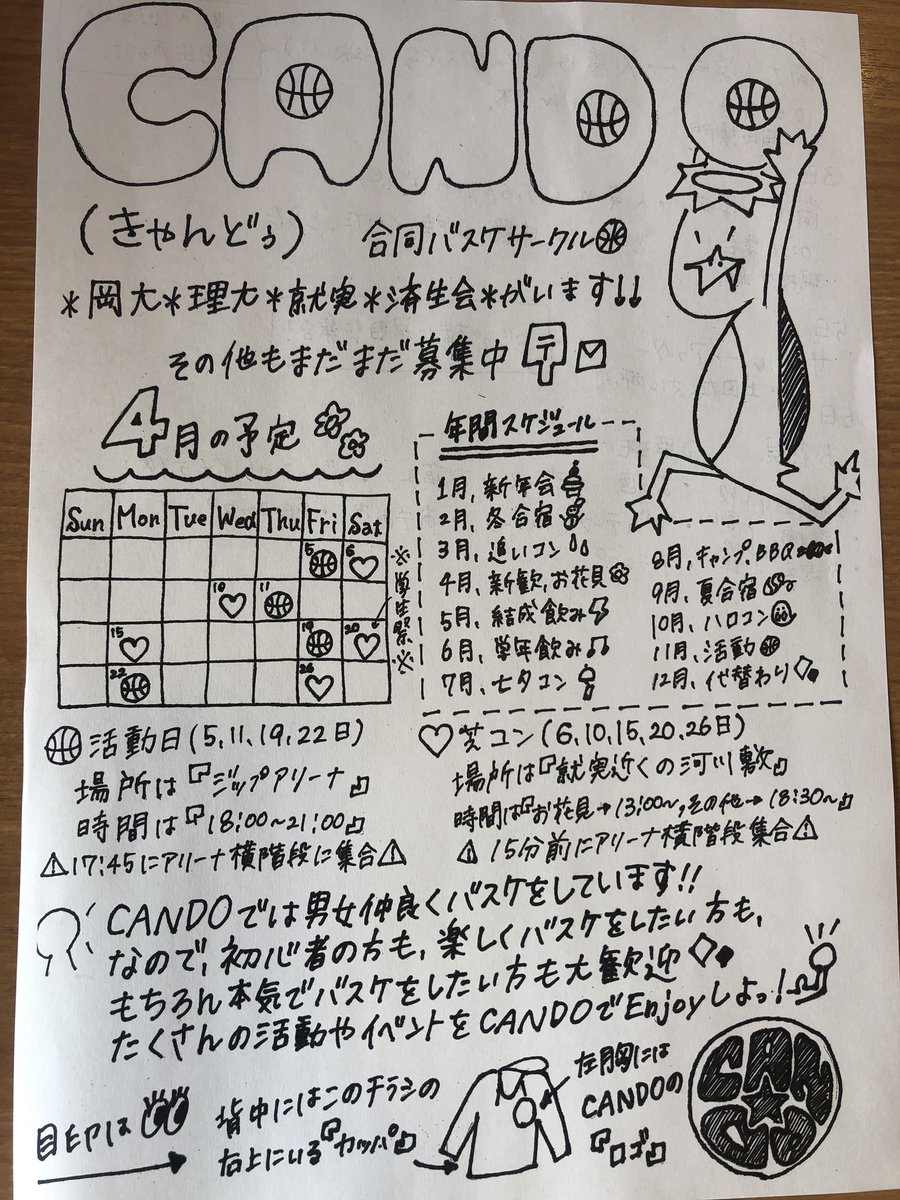 CANDO
(きゃんどぅ) 合同バスケサークル
*岡大*理大*就実*済生会*がいます!!
その他もまだまだ募集中
4月の予定
Sun Mon Tue Wed Thu Fri Sat
5 6
10 11
15 19 20
22 26
※学生祭※
年間スケジュール
1月、新年会
2月、冬合宿
3月、追いコン
4月、新歓、お花見
5月、結成飲み
6月、学年飲み
7月、七夕コン
8月、キャンプ、BBQ
9月、夏合宿
10月、ハロコン
11月、活動
12月、代替わり
活動日(5,11,19,22日)
場所は『ジップアリーナ』
時間は『18:00~21:00』
⚠17:45にアリーナ横階段に集合⚠
♡芝コン(6,10,15,20,26日)
場所は『就実近くの河川敷』
時間は『お花見→13:00~,その他→18:30~』
⚠15分前にアリーナ横階段集合⚠
CANDOでは男女仲良くバスケをしています!!
なので、初心者の方も、楽しくバスケをしたい方も、
もちろん本気でバスケをしたい方も大歓迎
たくさんの活動やイベントをCANDOでEnjoyしよっ!
目印は
背中にはこのチラシの
右上にいる『カッパ』
左胸には
CANDOの
『ロゴ』
CANDO